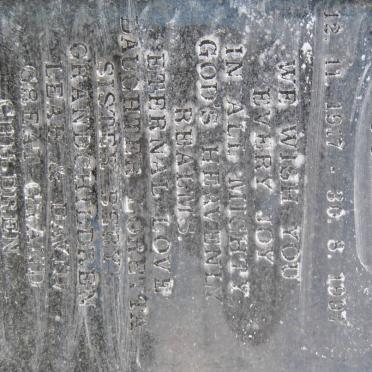 12. 11. 1917 - 30. 8. 1997
WE WISH YOU
EVERY JOY
IN ALL MIGHTY
GOD'S HEAVENLY
REALMS.
ETERNAL LOVE
DAUGHTER LORETTA
GRANDCHILDREN
GREAT GRAND
CHILDREN